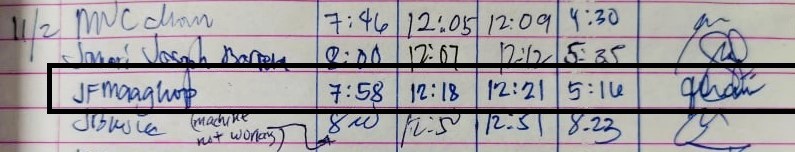 11/2 MNC chan 7:46 12:05 12:09 4:30
Joseph 8:00 12:07 12:12 5:35
JFMaaghop 7:58 12:18 12:21 5:16
(machine not working) 8:10 12:51 8:23